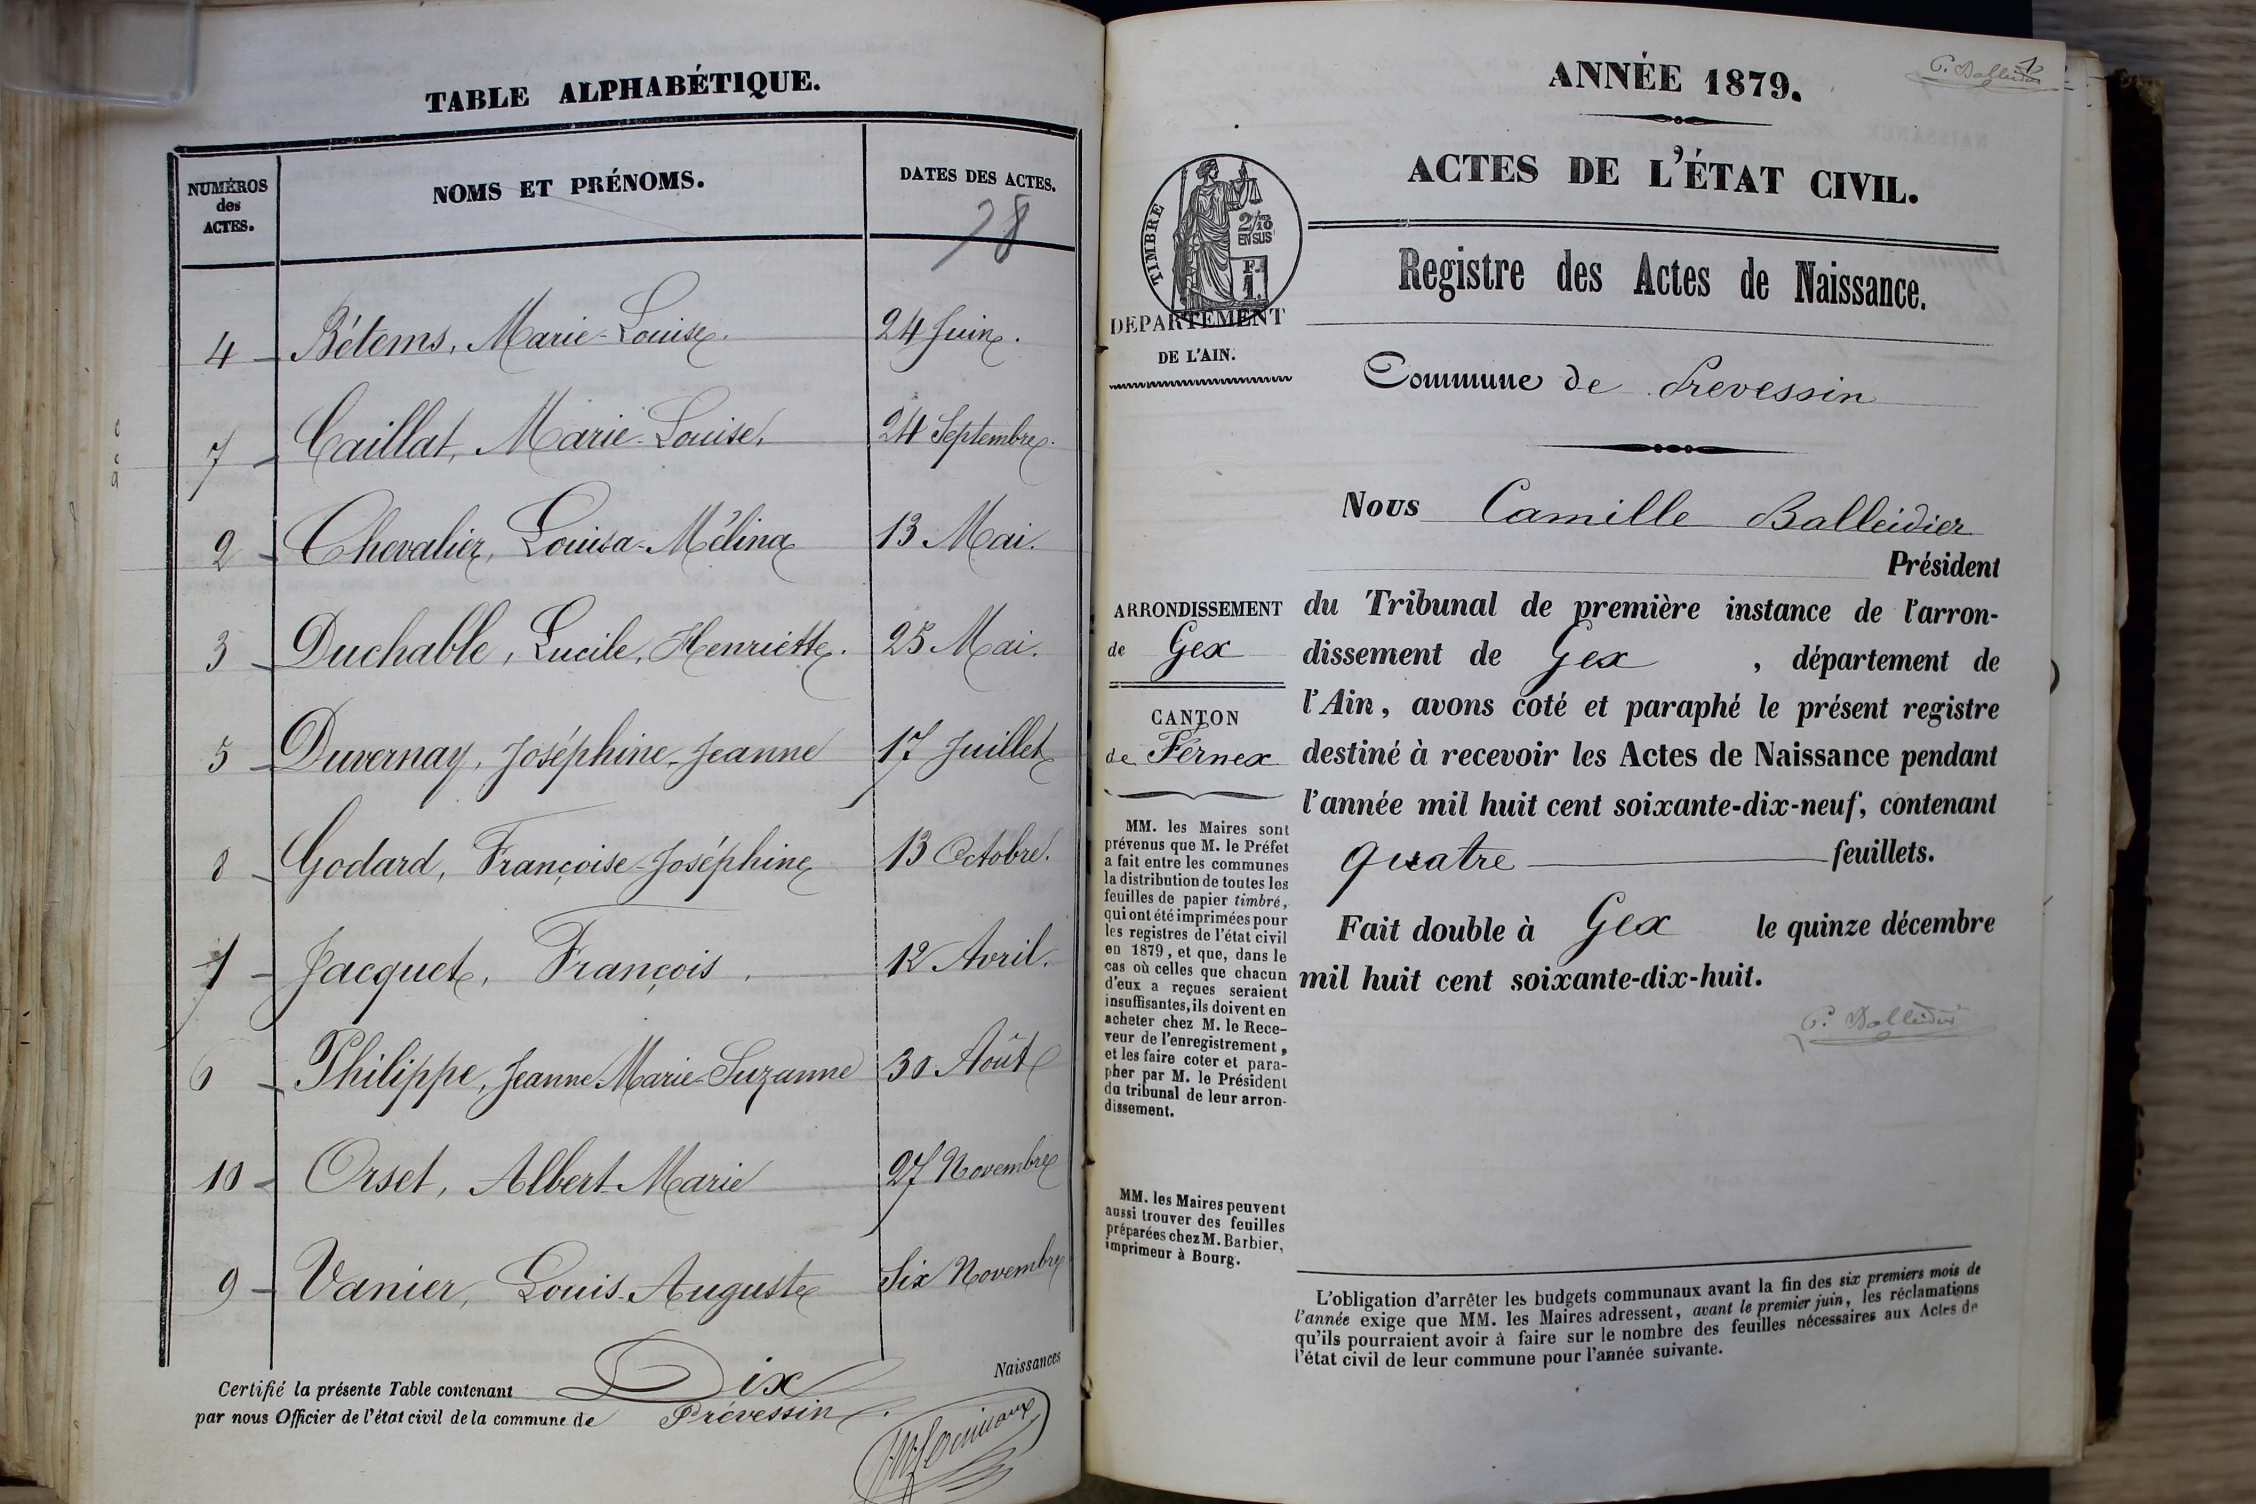 TABLE ALPHABÉTIQUE.
NUMÉROS des ACTES.
NOMS ET PRÉNOMS.
DATES DES ACTES.
78
4 - Bétems, Marie-Louise. 24 Juin.
7 - Caillat, Marie-Louise. 24 Septembre.
2 - Chevalier, Louisa-Mélina 13 Mai.
3 - Duchable, Lucile, Henriette. 25 Mai.
5 - Duvernay, Joséphine-Jeanne 17 Juillet
8 - Godard, Françoise-Joséphine 13 Octobre.
1 - Jacquet, François. 12 Avril.
6 - Philippe, Jeanne Marie-Suzanne 30 Août
10 - Orset, Albert-Marie 27 Novembre
9 - Vanier, Louis-Auguste Six Novembre
Certifié la présente Table contenant Dix Naissances
par nous Officier de l'état civil de la commune de Prévessin.
ANNÉE 1879.
C. Balleidier
1
ACTES DE L'ÉTAT CIVIL.
TIMBRE
2/10
EN SUS
F.
1.
Registre des Actes de Naissance.
DEPARTEMENT
DE L'AIN.
Commune de Prevessin
Nous Camille Balleidier
Président
du Tribunal de première instance de l'arron-
dissement de Gex, département de
l'Ain, avons coté et paraphé le présent registre
destiné à recevoir les Actes de Naissance pendant
l'année mil huit cent soixante-dix-neuf, contenant
quatre feuillets.
Fait double à Gex le quinze décembre
mil huit cent soixante-dix-huit.
C. Balleidier
ARRONDISSEMENT
de Gex
CANTON
de Fernex
MM. les Maires sont
prévenus que M. le Préfet
a fait entre les communes
la distribution de toutes les
feuilles de papier timbré,
qui ont été imprimées pour
les registres de l'état civil
en 1879, et que, dans le
cas où celles que chacun
d'eux a reçues seraient
insuffisantes, ils doivent en
acheter chez M. le Rece-
veur de l'enregistrement,
et les faire coter et para-
pher par M. le Président
du tribunal de leur arron-
dissement.
MM. les Maires peuvent
aussi trouver des feuilles
préparées chez M. Barbier,
imprimeur à Bourg.
L'obligation d'arrêter les budgets communaux avant la fin des six premiers mois de
l'année exige que MM. les Maires adressent, avant le premier juin, les réclamations
qu'ils pourraient avoir à faire sur le nombre des feuilles nécessaires aux Actes de
l'état civil de leur commune pour l'année suivante.